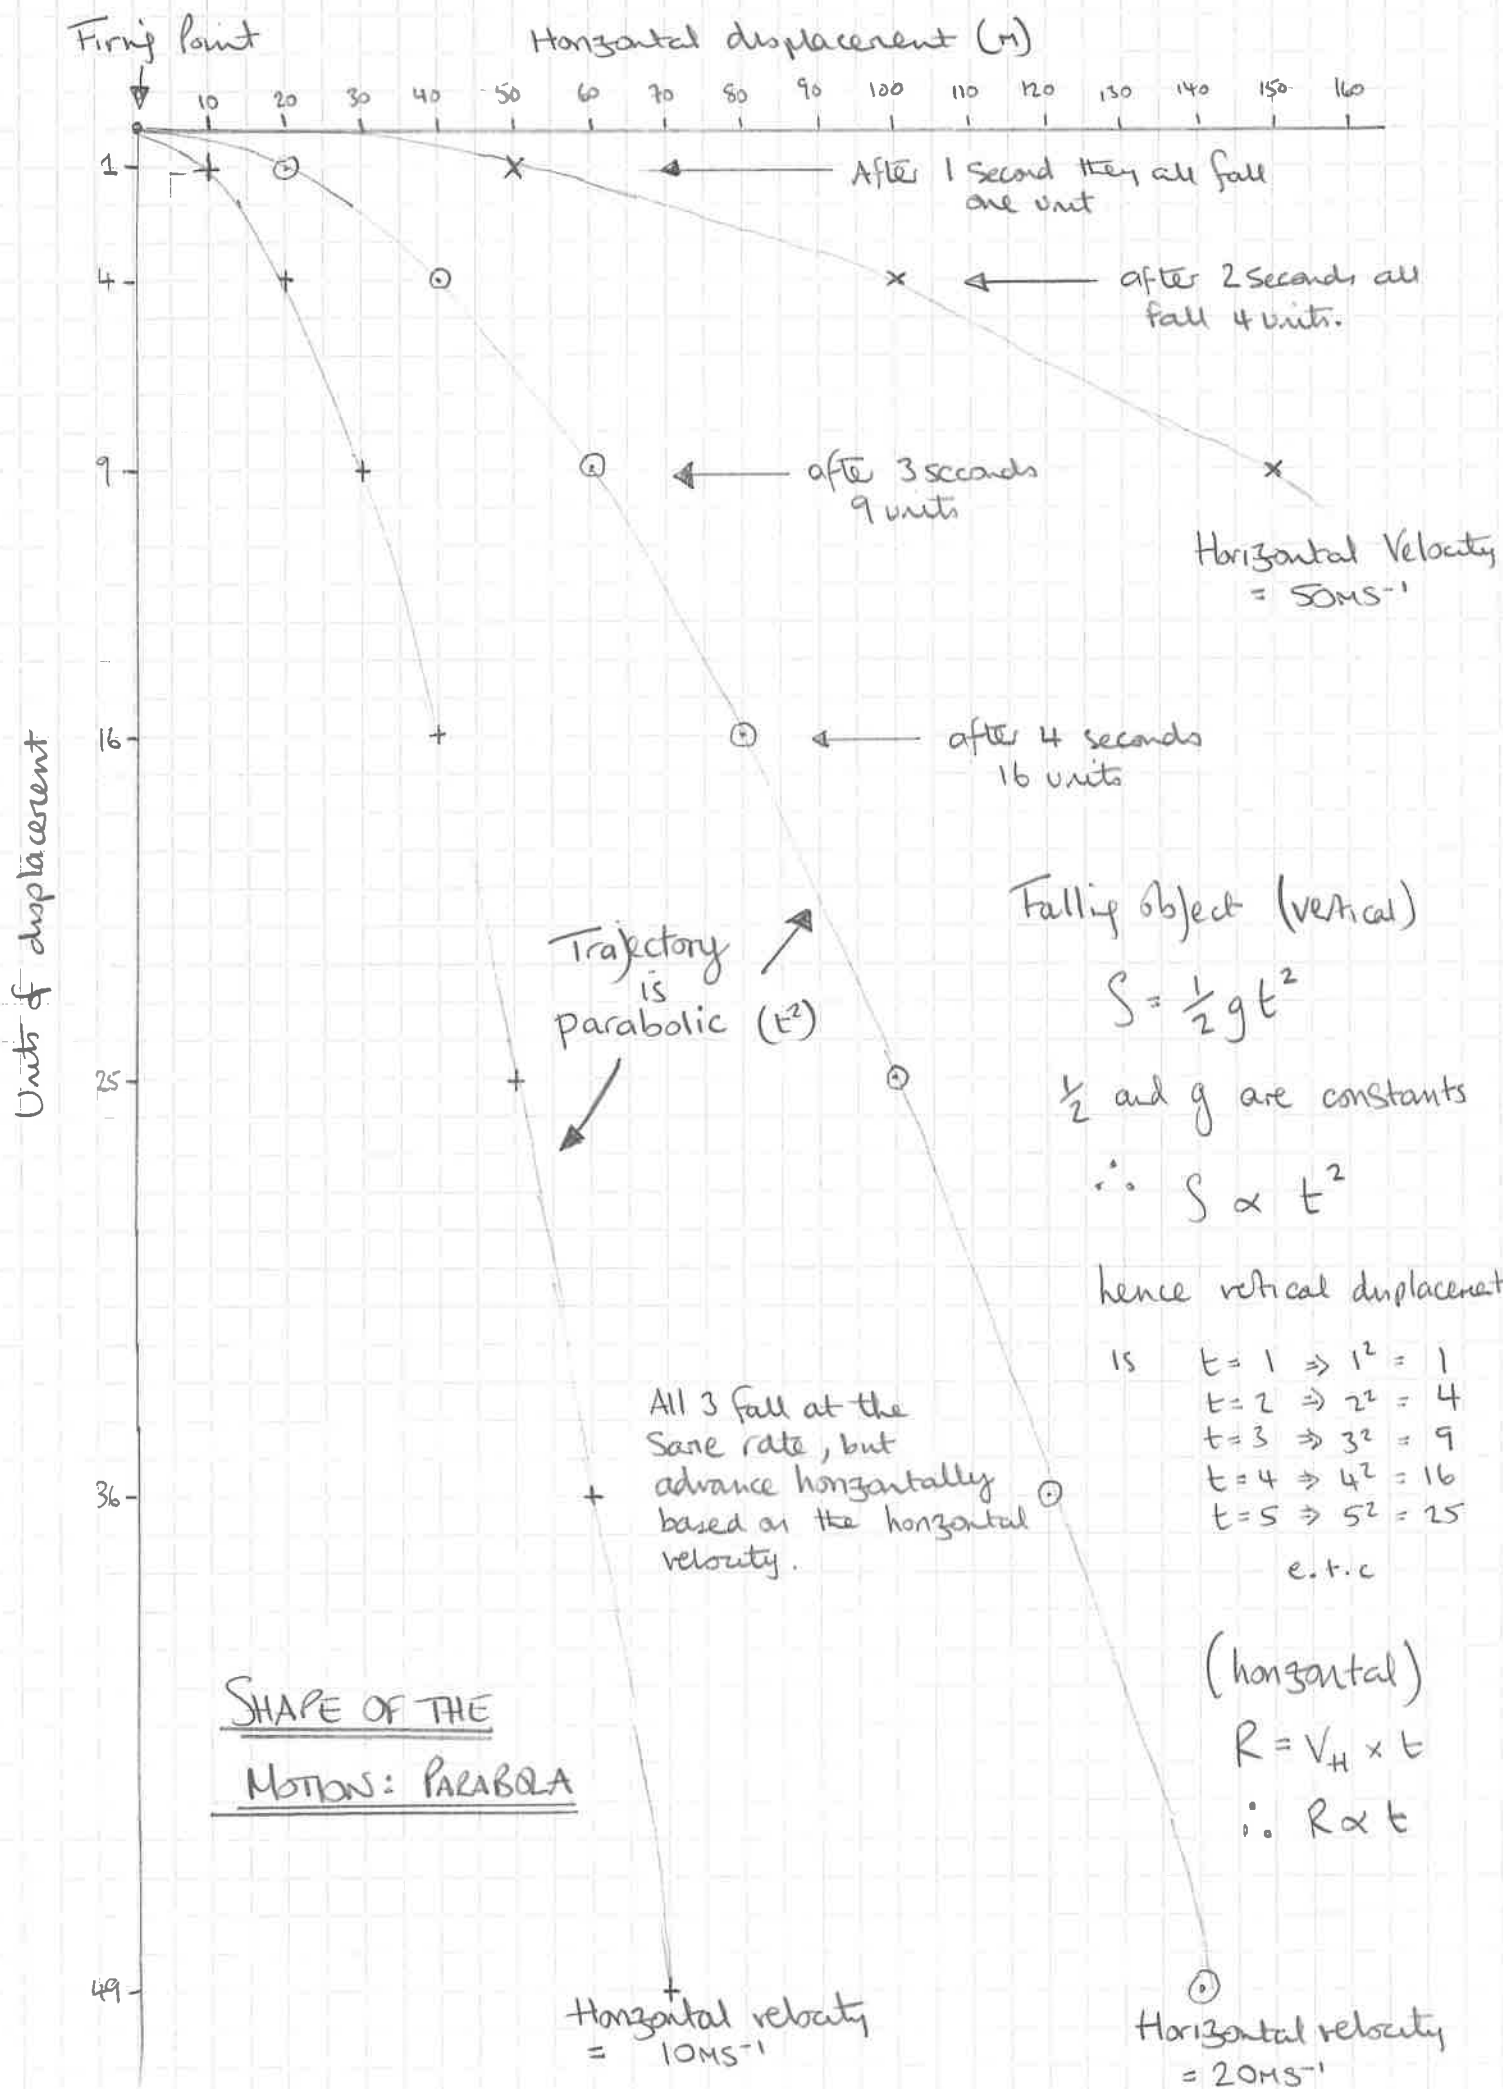 Firing Point
Horizontal displacement (m)
10 20 30 40 50 60 70 80 90 100 110 120 130 140 150 160
1
After 1 second they all fall
one unit
4
after 2 seconds all
fall 4 units.
9
after 3 seconds
9 units
Horizontal Velocity
= 50ms⁻¹
16
after 4 seconds
16 units
Units of displacement
Falling object (vertical)
S = ½ g t²
Trajectory
is
parabolic (t²)
25
½ and g are constants
∴ S ∝ t²
hence vertical displacement
is t = 1 ⇒ 1² = 1
t = 2 ⇒ 2² = 4
t = 3 ⇒ 3² = 9
t = 4 ⇒ 4² = 16
t = 5 ⇒ 5² = 25
e.t.c
All 3 fall at the
same rate, but
advance horizontally
based on the horizontal
velocity.
36
(horizontal)
R = V_H × t
∴ R ∝ t
SHAPE OF THE
MOTION: PARABOLA
49
Horizontal velocity
= 10ms⁻¹
Horizontal velocity
= 20ms⁻¹